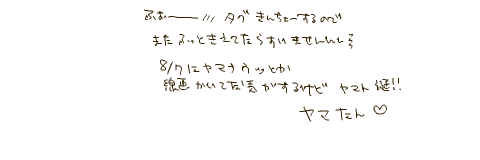 ふぉーーー /// タグ きんちょーするので
また ふっときえてたらすいませんんんん
8/7にヤマナウッとか
線画 かいてた気がするけど ヤマト誕!!
ヤマたん♡